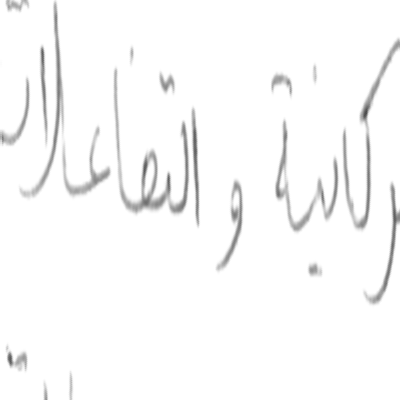 بركانية و التفاعلات